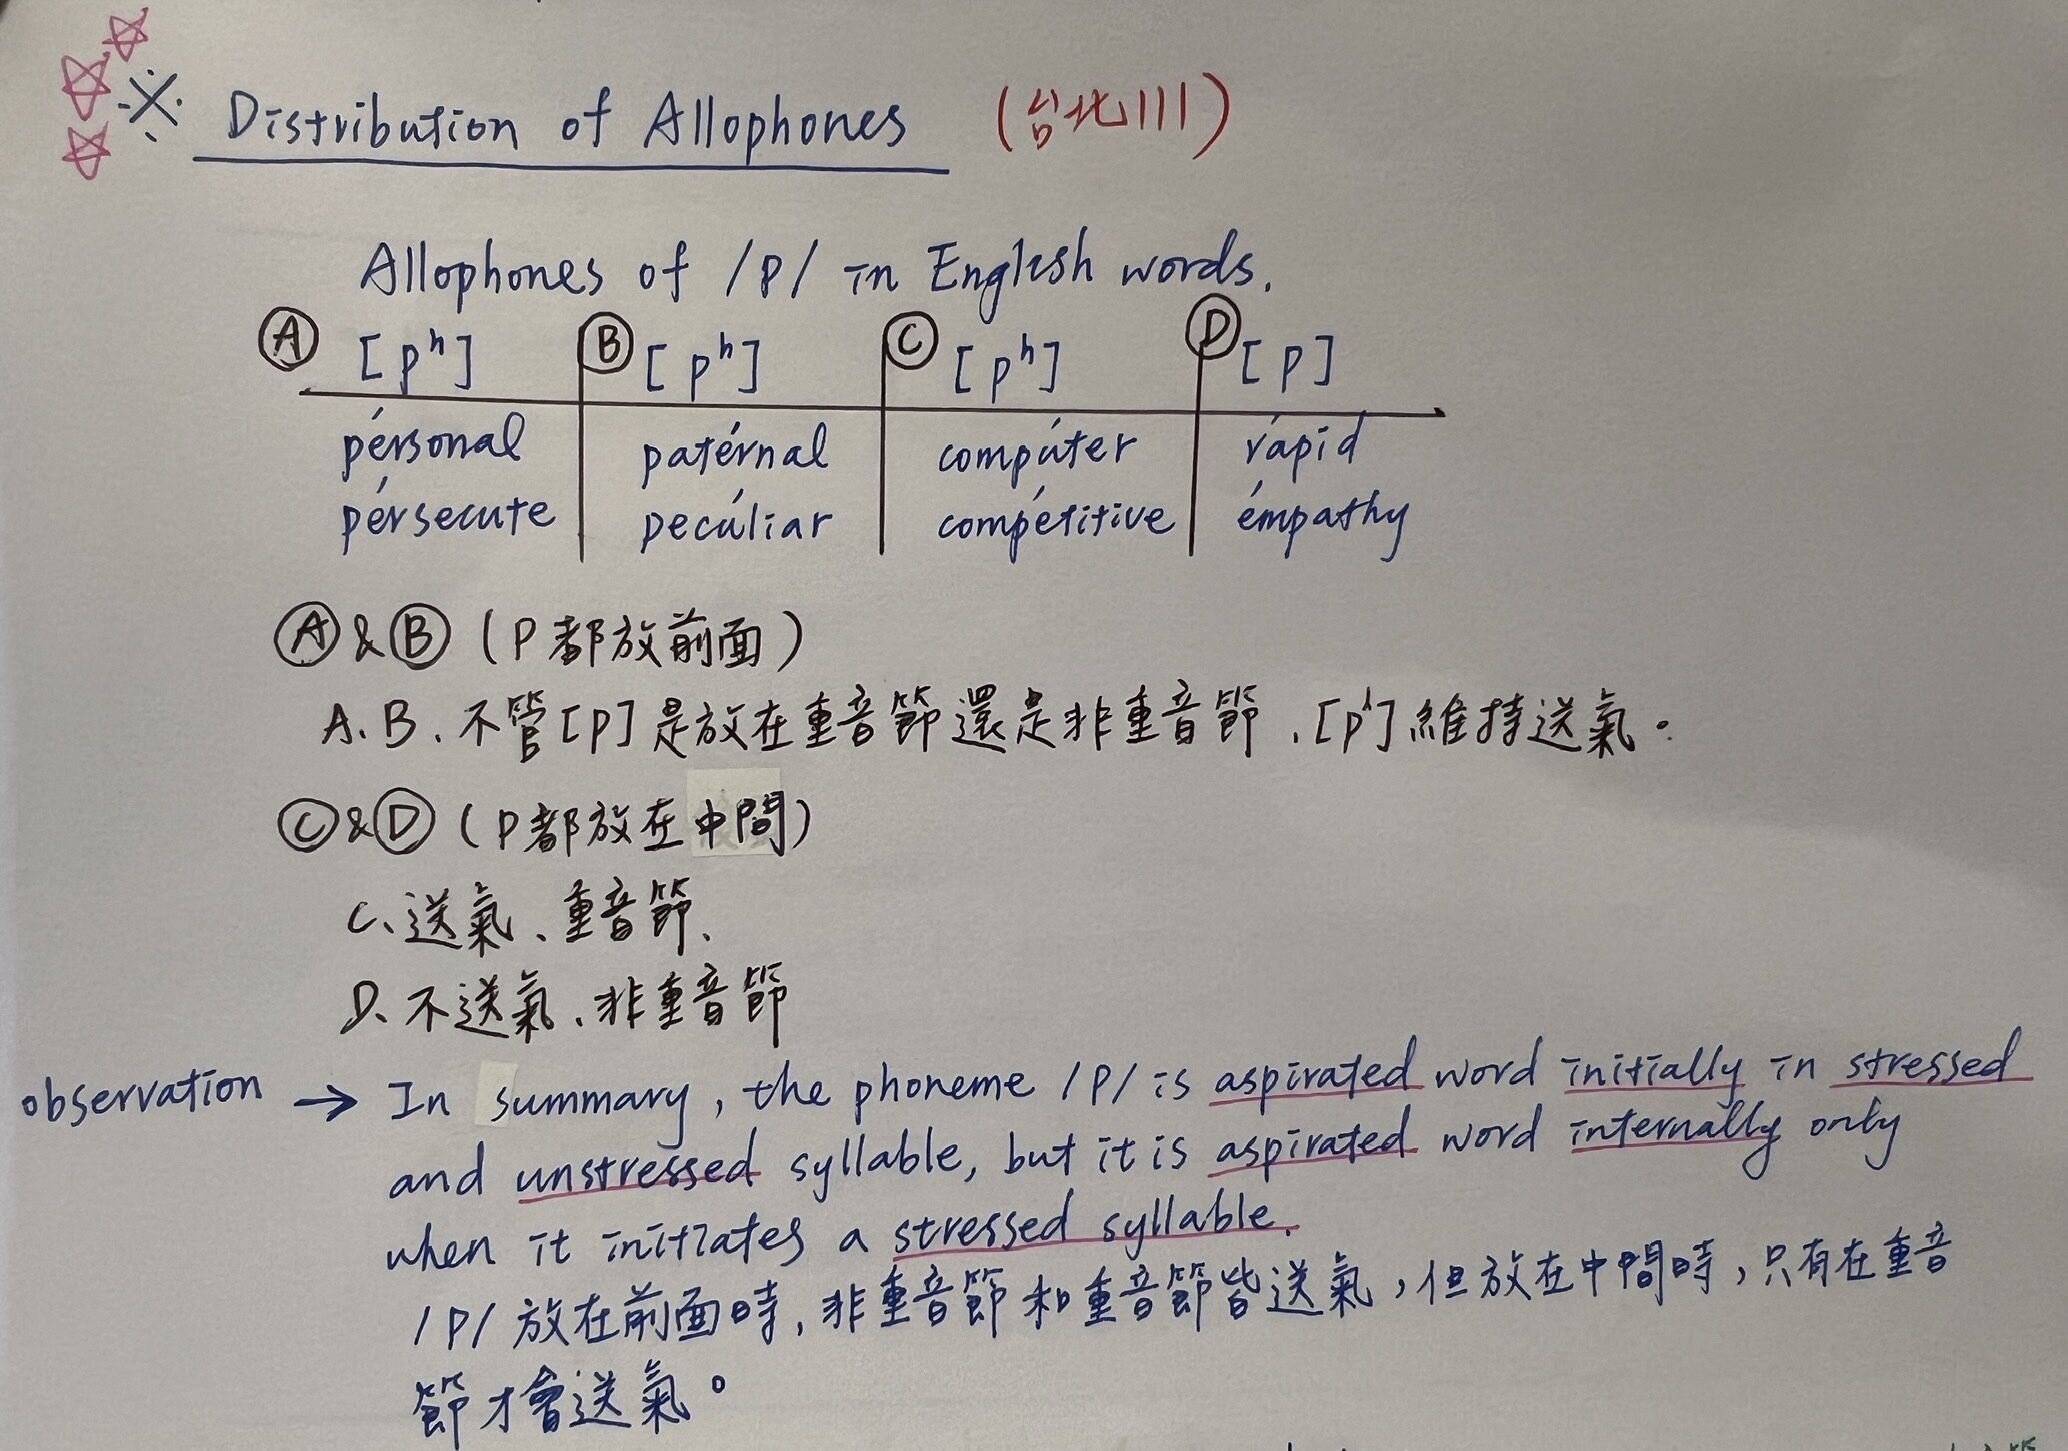 ※ Distribution of Allophones (台北111)
Allophones of /p/ in English words.
Ⓐ [pʰ] Ⓑ [pʰ] Ⓒ [pʰ] Ⓓ [p]
pérsonal patérnal compúter rápid
pérsecute pecúliar compétitive émpathy
Ⓐ & Ⓑ (P都放前面)
A.B. 不管[p]是放在重音節還是非重音節、[pʰ]維持送氣。
Ⓒ & Ⓓ (P都放在中間)
C、送氣、重音節、
D、不送氣、非重音節
observation → In summary, the phoneme /p/ is aspirated word initially in stressed
and unstressed syllable, but it is aspirated word internally only
when it initiates a stressed syllable.
/p/ 放在前面時, 非重音節和重音節皆送氣, 但放在中間時, 只有在重音
節才會送氣。